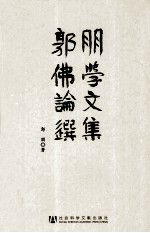 朋學文集
郭佛論選
郭朋 著
社会科学文献出版社